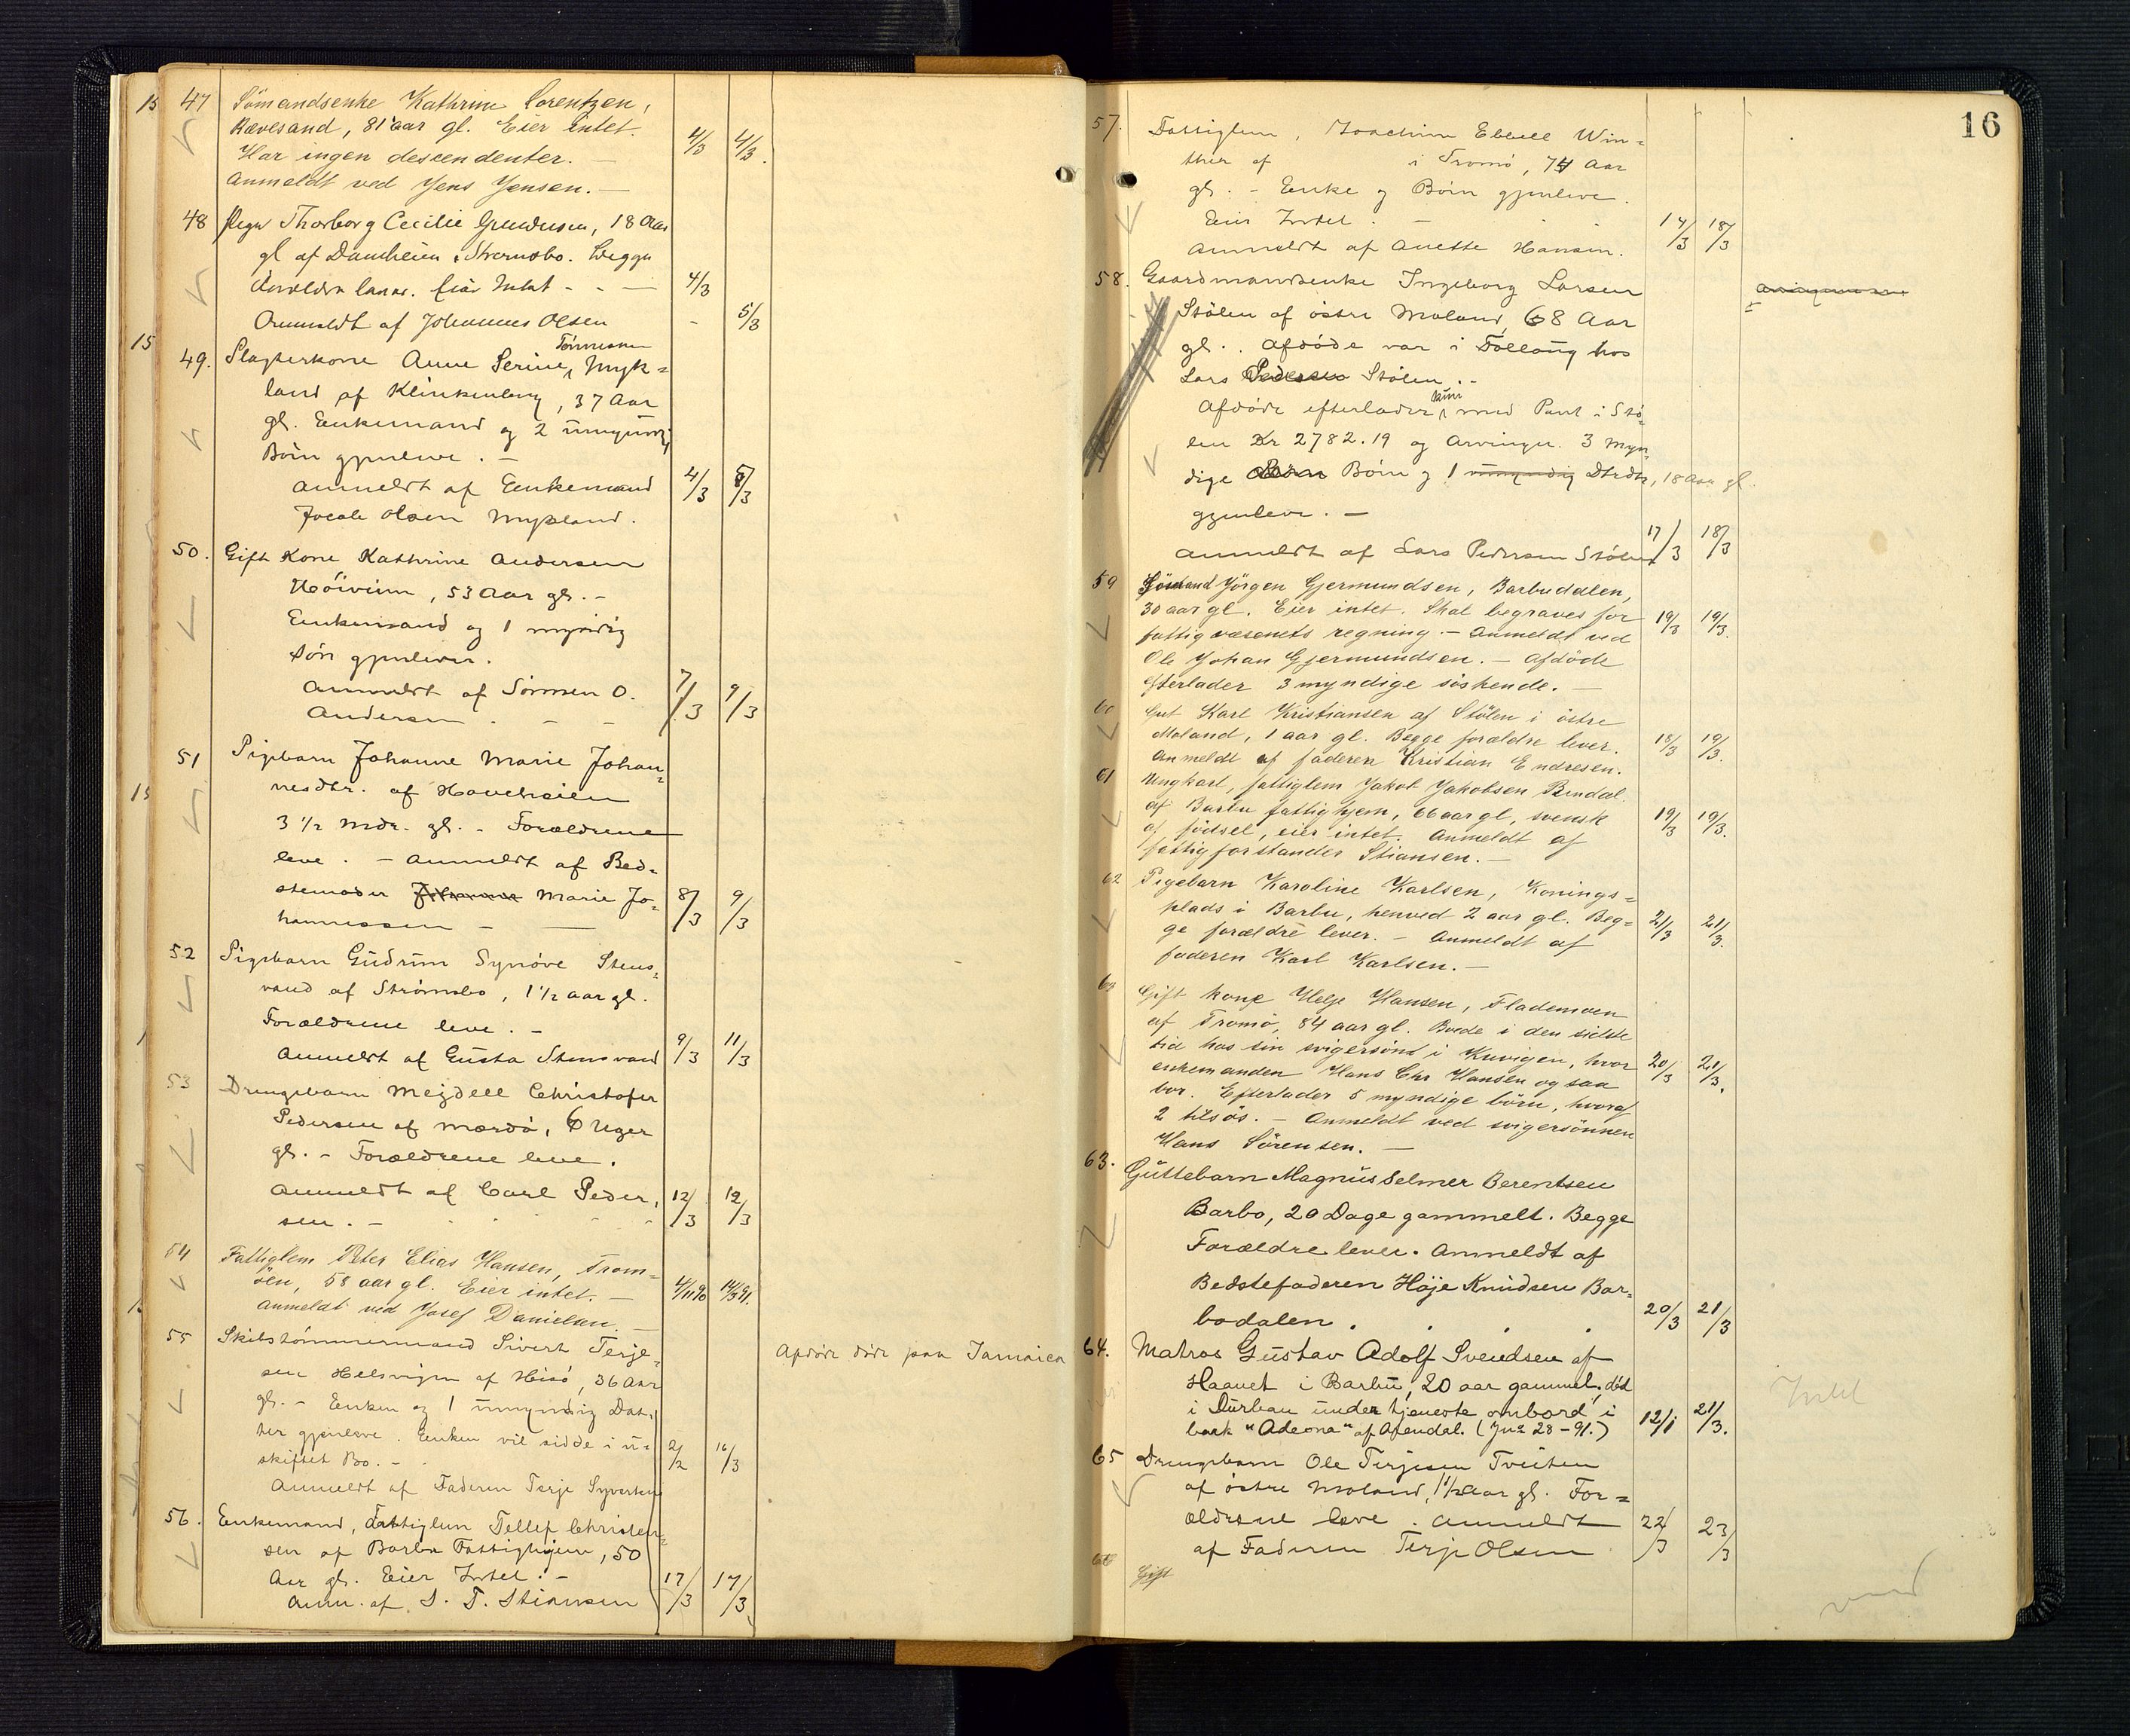 47 Sömandsenke Kathrine Lorentzen,
Rævesand, 81 aar gl. Eier intet.
Har ingen descendenter. — 4/3 4/3.
Anmeldt ved Jens Jensen. —
48 Pige Thorborg Cecilie Gundersen, 18 Aar
gl af Damheim i Strømsbo. Begge
Foreldre lever. Eier Intet - - — 4/3
Anmeldt af Johannes Olsen - 5/3
Tönnesen
49. Slagterkone Anne Serine, Myk=
land af Klinkenberg, 37 Aar
gl. Enkemand og 2 umyndig
Börn gjenleve. —
Anmeldt af Enkemand 4/3 5/3
Jocob Olsen Mykland.
50. Gift Kone Kathrine Andersen
Höivim, 53 Aar gl. -
Enkemand og 1 myndig
Sön gjenlever.
Anmeldt af Sörensen O. 7/3 9/3
Andersen . - -
51 Pigebarn Johanne Marie Johan=
nesdtr. af Havehaien
3 1/2 Mdr. gl. - Forældrene
leve. - Anmeldt af Bed=
stemoder Johanne Marie Jo= 8/3 9/3
hannessen - —
52 Pigebarn Gudrun Synöve Stens=
vand af Strömsbo, 1 1/2 Aar gl.
Forældrene leve. -
Anmeldt af Gusta Stensvand 9/3 11/3
53 Drengebarn Mejdell Christofer
Pedersen af Mærdö, 6 Uger
gl. - Forældrene leve.
Anmeldt af Carl Peder= 12/3 12/3
sen. -
54 Fattiglem Peter Elias Hansen, Trom=
öen, 58 aar gl. Eier intet. — 4/11 90 14/3 91.
Anmeldt ved Josef Danielsen. —
55 Skibstömmermand Sivert Terje= Afdöde döde paa Jamaica
sen Helsvigen af Hisö, 36 Aar
gl. - Enken og 1 umyndig Dat=
ter gjenleve. Enken vil sidde i u=
skiftet Bo. - 2/2 16/3
Anmeldt af Faderen Terje Syvertsen
56. Enkemand, Fattiglem Tellef Christen=
sen af Barbu Fattighjem, 50
Aar gl. Eier Intet. - 17/3 17/3
Anm. af S. T. Stiansen
16
57. Fattiglem, Joachim Ebbell Win=
ther af i Tromö, 74 Aar
gl. - Enke og Börn gjenleve.
Eier Intet. - 17/3 18/3
Anmeldt af Anette Hansen.
58. Gaardmandsenke Ingeborg Larsen
Stölen af östre Moland, 68 Aar
gl. . Afdöde var i Föllaug hos
Lars Pedersen Stölen. -
Afdöde efterlader kun med Pant i Stö=
len Kr 2782.19 og Arvinger. 3 Myn=
dige Börn Börn og 1 umyndig Dtrdtr, 18 Aar gl.
gjenleve. —
Anmeldt af Lars Pedersen Stölen 17/3 18/3
59 Sömand Jörgen Gjermundsen, Barbudalen,
30 aar gl. Eier intet. Skal begraves for 19/3 19/3.
fattigvæsenets regning. - Anmeldt ved
Ole Johan Gjermundsen. - Afdöde
efterlader 3 myndige söskende. —
60 Gut Karl Kristiansen af Stölen i östre
Moland, 1 aar gl. Begge forældre lever. 18/3 19/3.
Anmeldt af faderen Kristian Endresen.
61 Ungkarl, fattiglem Jakob Jakobsen Rendal
af Barbu fattighjem, 66 aar gl, svensk 19/3 19/3.
af födsel, eier intet. Anmeldt af
fattigforstander Stiansen. —
62 Pigebarn Karoline Karlsen, Konings=
plads i Barbu, henved 2 aar gl. Beg= 21/3 21/3.
ge forældre lever. - Anmeldt af
faderen Karl Karlsen. —
62 Gift kone Helje Hansen, Flademoen
af Tromö, 84 aar gl. Boede i den sidste
tid hos sin svigersönn i Kuvigen, hvor 20/3 21/3.
enkemanden Hans Chr Hansen ogsaa
bor. Efterlader 5 myndige börn, hvoraf
2 tilsös. - Anmeldt ved svigersönnen
Hans Sörensen. —
63. Guttebarn Magnus Selmer Berentsen
Barbo, 20 Dage gammelt. Begge
Forældre lever. Anmeldt af
Bedstefaderen Höje Knudsen Bar=
bodalen. 20/3 21/3
64. Matros Gustav Adolf Svendsen af
Haavet i Barbu, 20 aar gammel, död Intet
i Durban under tjeneste ombord i
bark "Adeona" af Arendal. (Jnr 28-91.) 12/1 21/3.
65 Drengebarn Ole Terjesen Tveiten
af östre Moland, 1 1/2 Aar gl. For=
ældrene leve. Anmeldt 22/3 23/3
af Faderen Terje Olsen
66 Gift